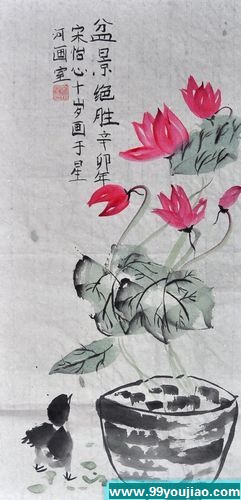 盆景绝胜辛卯年
宋怡心十岁画于星
河画室
www.99youjiao.com